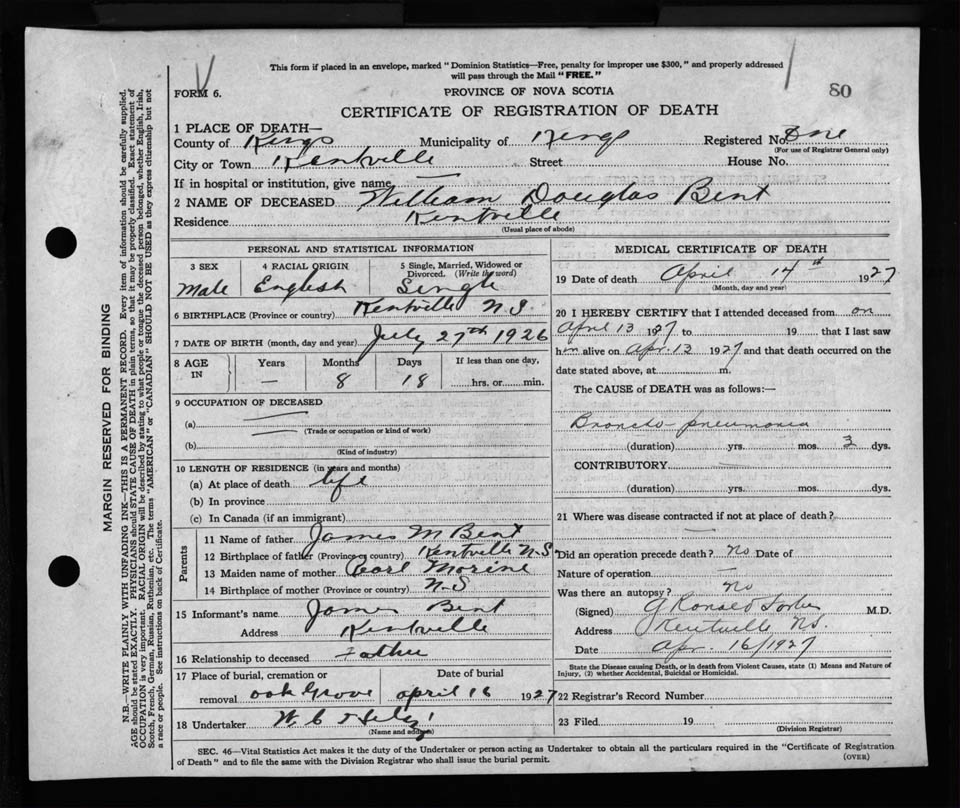 This form if placed in an envelope, marked "Dominion Statistics—Free, penalty for improper use $300," and properly addressed
will pass through the Mail "FREE."
FORM 6.
PROVINCE OF NOVA SCOTIA
80
CERTIFICATE OF REGISTRATION OF DEATH
1 PLACE OF DEATH—
County of Kings Municipality of Kings Registered No. One
(For use of Registrar General only)
City or Town Kentville Street House No.
If in hospital or institution, give name —
2 NAME OF DECEASED William Douglas Bent
Residence Kentville
(Usual place of abode)
PERSONAL AND STATISTICAL INFORMATION
3 SEX 4 RACIAL ORIGIN 5 Single, Married, Widowed or
Divorced. (Write the word)
Male English Single
6 BIRTHPLACE (Province or country) Kentville N.S.
7 DATE OF BIRTH (month, day and year) July 27th 1926
8 AGE IN Years Months Days If less than one day,
— 8 18 hrs. or min.
9 OCCUPATION OF DECEASED
(a) —
(Trade or occupation or kind of work)
(b) —
(Kind of industry)
10 LENGTH OF RESIDENCE (in years and months)
(a) At place of death life
(b) In province
(c) In Canada (if an immigrant)
Parents
11 Name of father James M Bent
12 Birthplace of father (Province or country) Kentville N.S
13 Maiden name of mother Pearl Morine
14 Birthplace of mother (Province or country) N-S
15 Informant's name James Bent
Address Kentville
16 Relationship to deceased Father
17 Place of burial, cremation or Date of burial
removal Oak Grove april 16 1927
18 Undertaker W C
(Name and address)
MEDICAL CERTIFICATE OF DEATH
19 Date of death April 14th 1927
(Month, day and year)
20 I HEREBY CERTIFY that I attended deceased from on
April 13 1927 to 19 that I last saw
him alive on Apr. 13 1927 and that death occurred on the
date stated above, at m.
The CAUSE of DEATH was as follows:—
Broncho-pneumonia
(duration) yrs. mos. 3 dys.
CONTRIBUTORY —
(duration) yrs. mos. dys.
21 Where was disease contracted if not at place of death?
—
Did an operation precede death? no Date of
Nature of operation —
Was there an autopsy? no
(Signed) G Ronald Forbes M.D.
Address Kentville NS.
Date Apr. 16/1927
State the Disease causing Death, or in death from Violent Causes, state (1) Means and Nature of
Injury, (2) whether Accidental, Suicidal or Homicidal.
22 Registrar's Record Number
23 Filed 19
(Division Registrar)
SEC. 46—Vital Statistics Act makes it the duty of the Undertaker or person acting as Undertaker to obtain all the particulars required in the "Certificate of Registration
of Death" and to file the same with the Division Registrar who shall issue the burial permit.
(OVER)
MARGIN RESERVED FOR BINDING
N.B.—WRITE PLAINLY WITH UNFADING INK—THIS IS A PERMANENT RECORD. Every item of information should be carefully supplied.
AGE should be stated EXACTLY. PHYSICIANS should STATE CAUSE OF DEATH in plain terms, so that it may be properly classified. Exact statement of
OCCUPATION is very important. RACIAL ORIGIN will be described by stating to what people or tongue the deceased person belonged, whether English, Irish,
Scotch, French, German, Russian, Ruthenian, etc. The terms "AMERICAN" or "CANADIAN" SHOULD NOT BE USED as they express citizenship but not
a race or people. See instructions on back of Certificate.